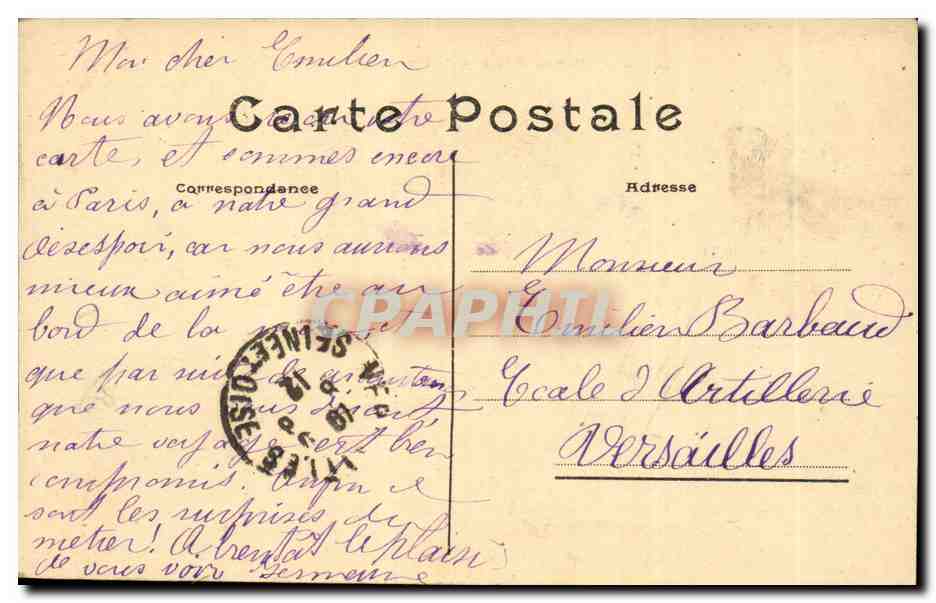 Mon cher Emilien
Carte Postale
Nous avons votre
carte, et sommes encore
Correspondance
Adresse
à Paris, à notre grand
désespoir, car nous aurions
mieux aimé être au
bord de la et
que par suite de
que nous
notre voyage est b'en
compromis. Enfin ce
sont les surprises du
métier! A bientôt le plaisir
de vous voir Germaine
Monsieur
Emilien Barbaud
Ecole d'Artillerie
Versailles
SEINE ET OISE
CPAPHIL